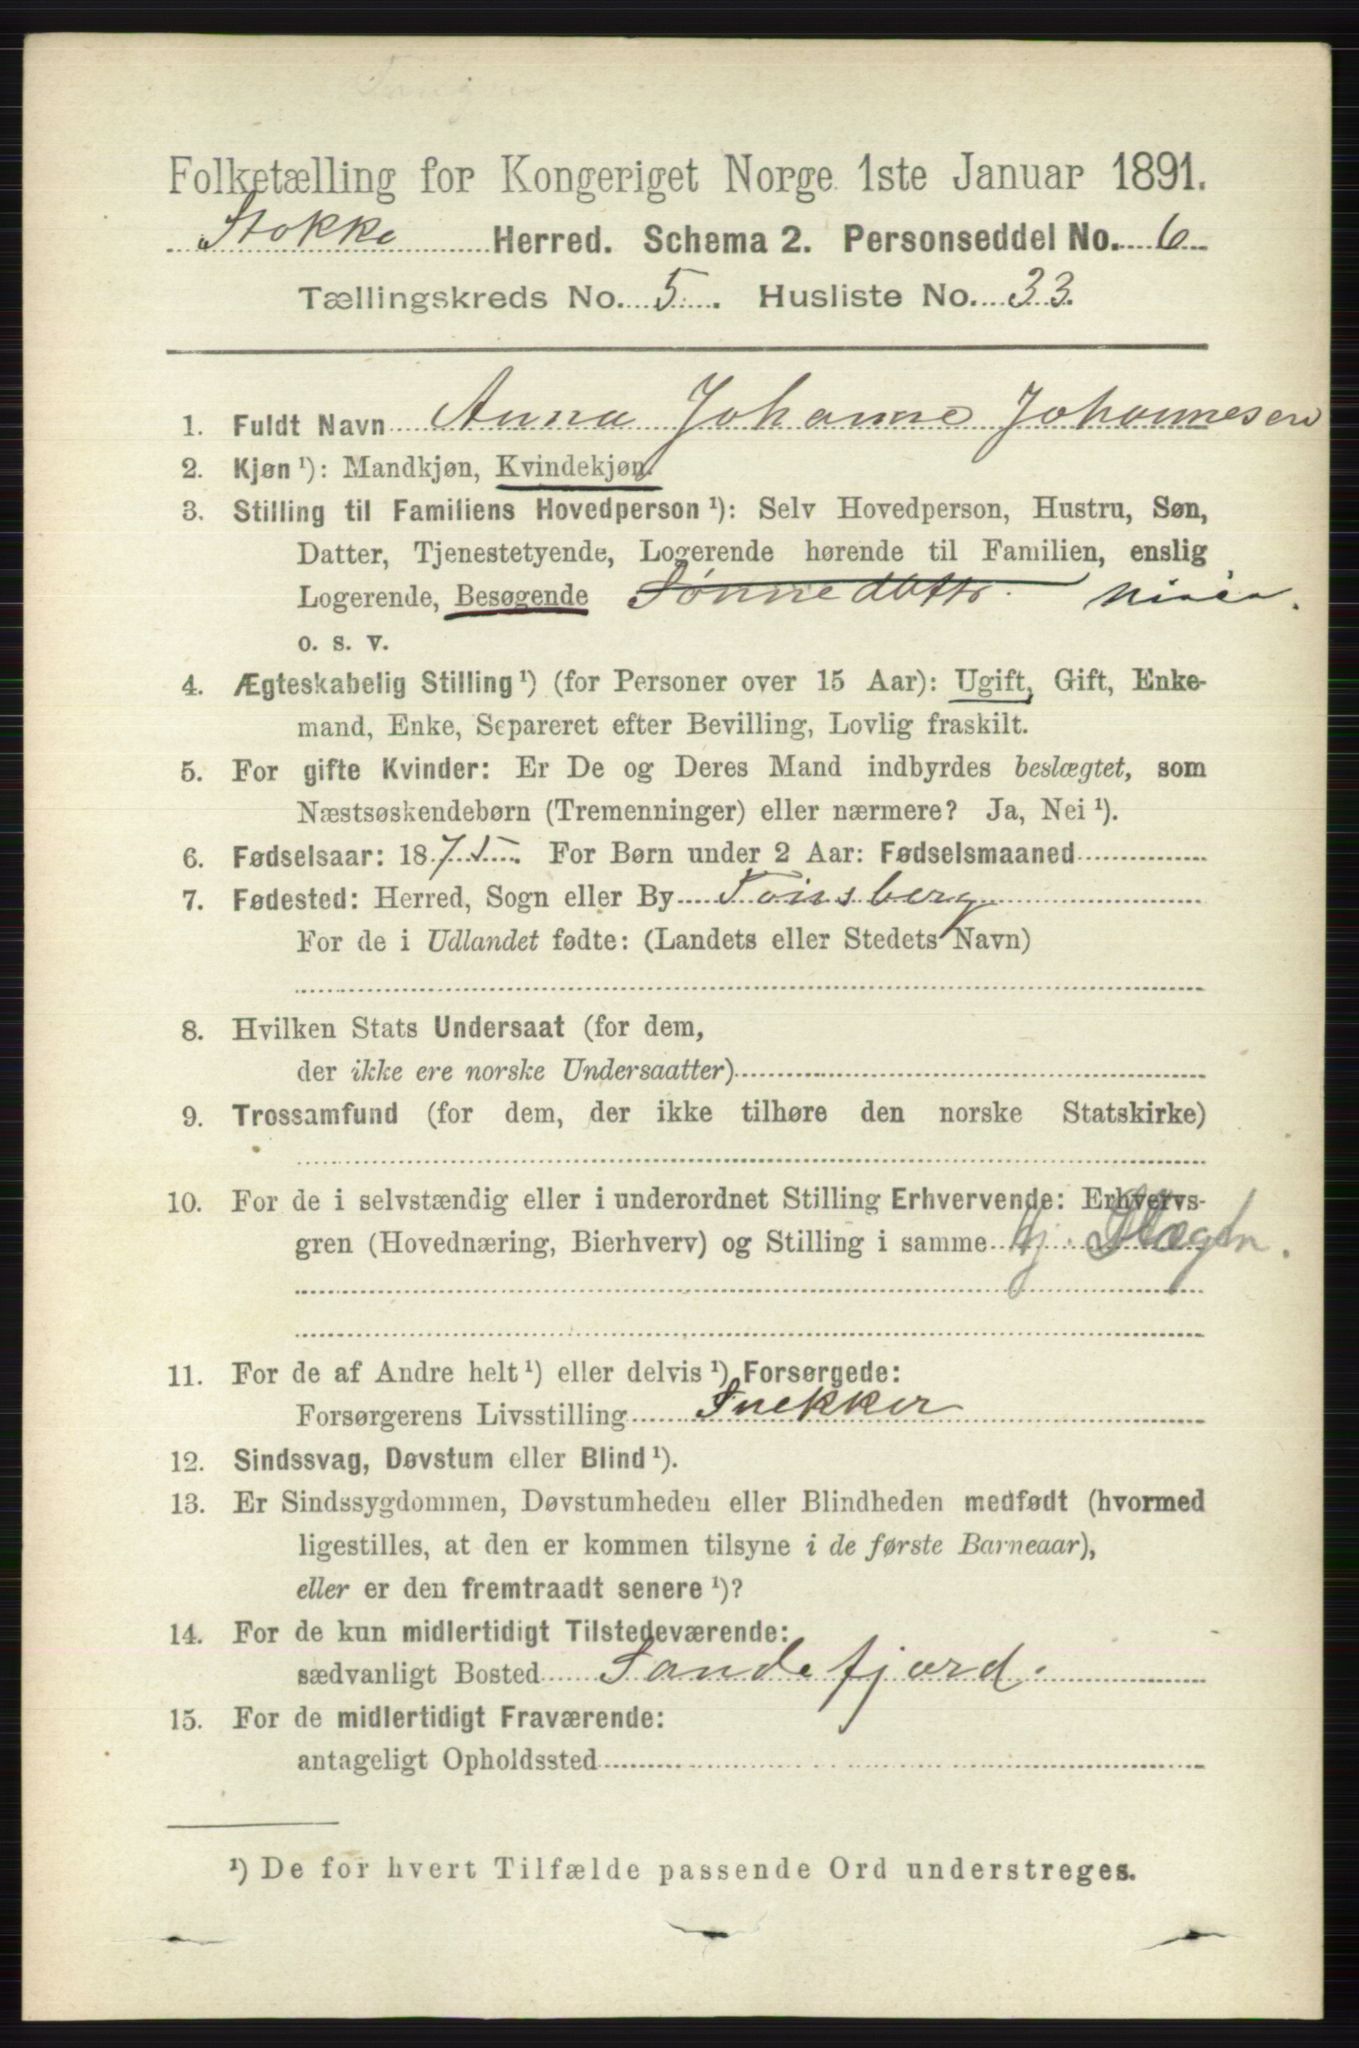 Folketælling for Kongeriget Norge 1ste Januar 1891.
Stokke Herred. Schema 2. Personseddel No. 6
Tællingskreds No. 5. Husliste No. 33.
1. Fuldt Navn Anna Johanne Johannesen
2. Kjøn ¹): Mandkjøn, Kvindekjøn.
3. Stilling til Familiens Hovedperson ¹): Selv Hovedperson, Hustru, Søn,
Datter, Tjenestetyende, Logerende hørende til Familien, enslig
Logerende, Besøgende Sønnedattr.
o. s. v.
4. Ægteskabelig Stilling ¹) (for Personer over 15 Aar): Ugift, Gift, Enke-
mand, Enke, Separeret efter Bevilling, Lovlig fraskilt.
5. For gifte Kvinder: Er De og Deres Mand indbyrdes beslægtet, som
Næstsøskendebørn (Tremenninger) eller nærmere? Ja, Nei ¹).
6. Fødselsaar: 1875. For Børn under 2 Aar: Fødselsmaaned
7. Fødested: Herred, Sogn eller By Tønsberg
For de i Udlandet fødte: (Landets eller Stedets Navn)
8. Hvilken Stats Undersaat (for dem,
der ikke ere norske Undersaatter)
9. Trossamfund (for dem, der ikke tilhøre den norske Statskirke)
10. For de i selvstændig eller i underordnet Stilling Erhvervende: Erhvervs-
gren (Hovednæring, Bierhverv) og Stilling i samme
11. For de af Andre helt ¹) eller delvis ¹) Forsørgede:
Forsørgerens Livsstilling Snekker
12. Sindssvag, Døvstum eller Blind ¹).
13. Er Sindssygdommen, Døvstumheden eller Blindheden medfødt (hvormed
ligestilles, at den er kommen tilsyne i de første Barneaar),
eller er den fremtraadt senere ¹)?
14. For de kun midlertidigt Tilstedeværende:
sædvanligt Bosted Sandefjord.
15. For de midlertidigt Fraværende:
antageligt Opholdssted
¹) De for hvert Tilfælde passende Ord understreges.